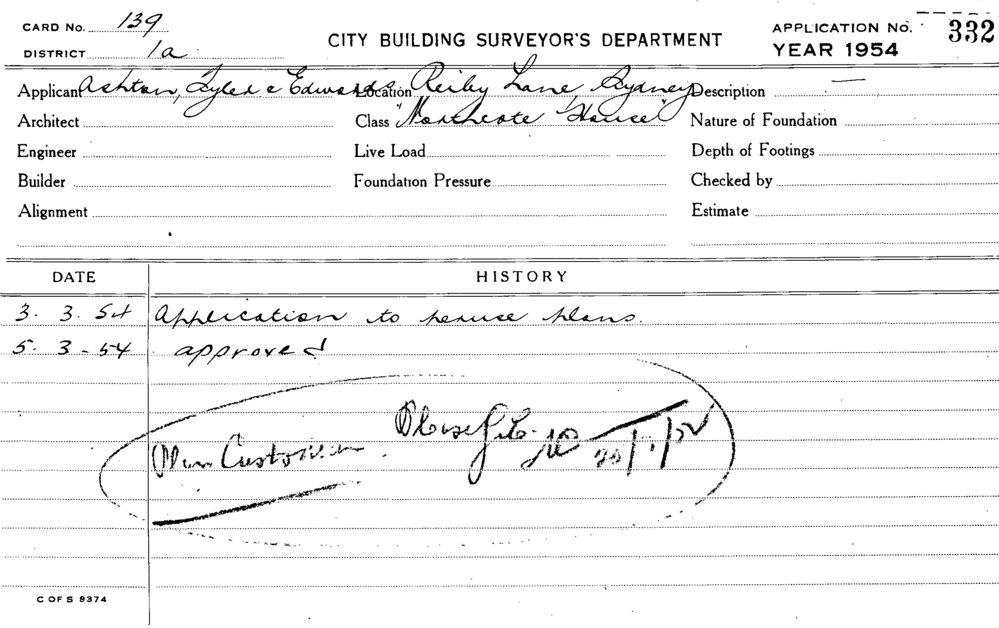 CARD No. 139
DISTRICT 1a
CITY BUILDING SURVEYOR'S DEPARTMENT
APPLICATION No. 332
YEAR 1954
Applicant Ashton, Tyler & Edwards Location Reiby Lane Sydney Description —
Architect Class "Northcote House" Nature of Foundation
Engineer Live Load Depth of Footings
Builder Foundation Pressure Checked by
Alignment Estimate
DATE HISTORY
3. 3. 54 Application to peruse plans.
5. 3 - 54 approved
Plan Custodian Please file
C OF S 9374